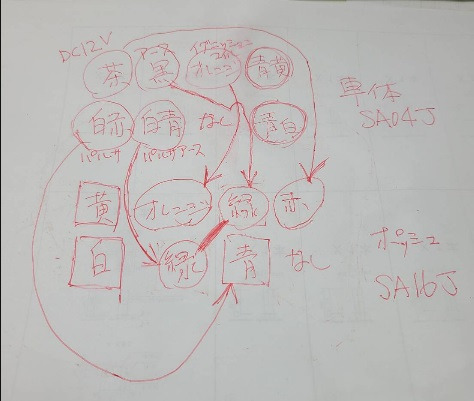 DC12V アース イグニッションコイル
茶 黒 オレンジ 青黄
単体
SA04J
白赤 白青 なし 青白
パルサ パルサアース
黄 オレンジ 緑 赤
ポッシュ
白 緑 青 なし
SA16J